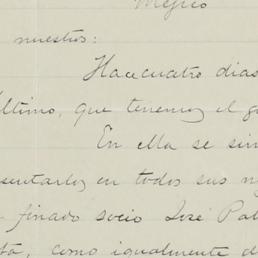 Méjico
nuestros:
Hace cuatro dias
último, que tenemos el g
En ella se sir
sentarlos en todos sus n
finado socio José Pab
ta, como igualmente d